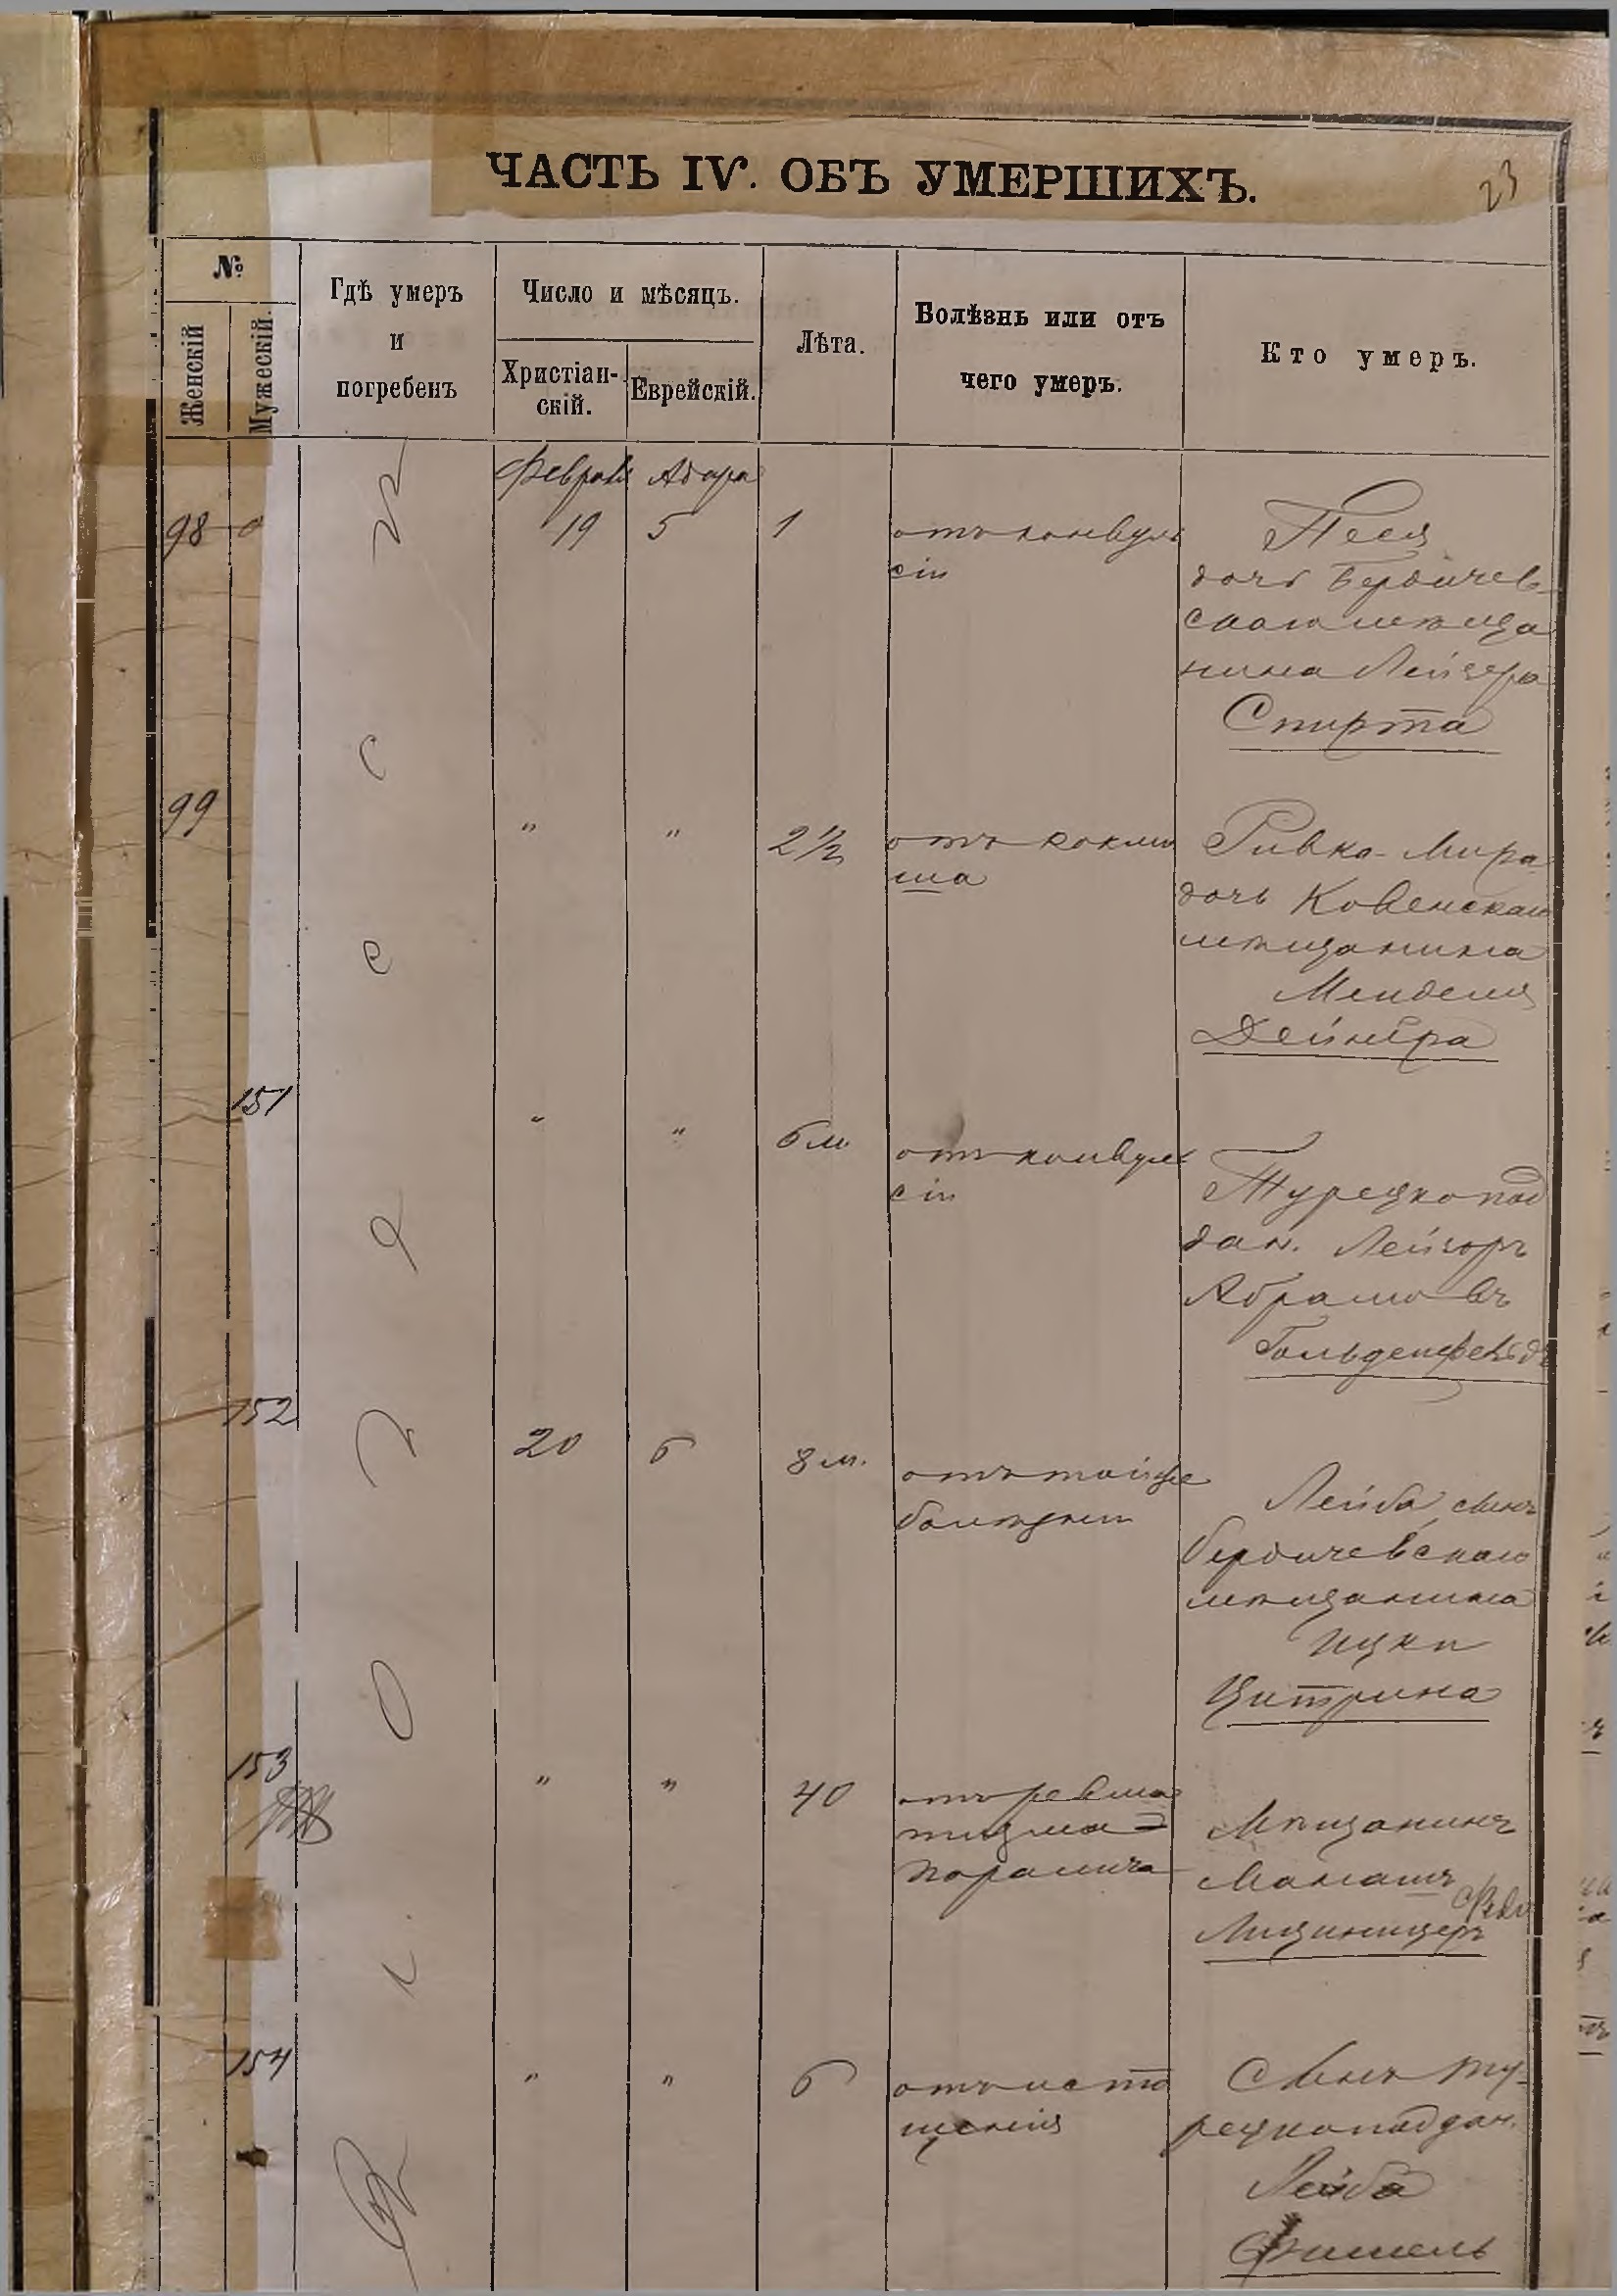 ЧАСТЬ IV. ОБЪ УМЕРШИХЪ.
23
№
Женскій
Мужескій.
Гдѣ умеръ
и
погребенъ
Число и мѣсяцъ.
Христіан-
скій.
Еврейскій.
Лѣта.
Болѣзнь или отъ
чего умеръ.
Кто умеръ.
Февраля Адара
98 19 5 1 отъ конвуль
сіи
Песя
дочь Бердичев-
скаго мѣща
нина Лейзера
Спирта
99 " " 2½ отъ коклю
ша
Ривка-Мира
дочь Ковенскаго
мѣщанина
Менделя
Дейнера
151 " " 6 м. отъ конвуль
сіи
Турецкопод
дан. Лейзоръ
Абрамовъ
Гольденфельдъ
152 20 6 8 м. отъ
болѣзни
Лейба, сынъ
Бердичевскаго
мѣщанина
Ицки
Цитрина
153 " " 40 отъ ревма
тизма
паралича
Мѣщанинъ
Манашъ
154 " " 6 отъ исто
щенія
Сынъ ту-
рецкоподдан.
Лейба
Фишель
О
д
е
с
с